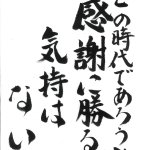 この時代であろう
感謝に勝る
気持は
ない